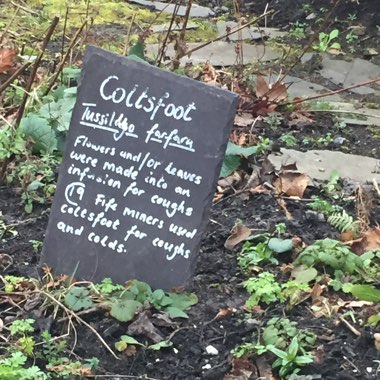 Coltsfoot
Tussilago farfara
Flowers and/or leaves
were made into an
infusion for coughs
C19 Fife miners used
coltsfoot for coughs
and colds.